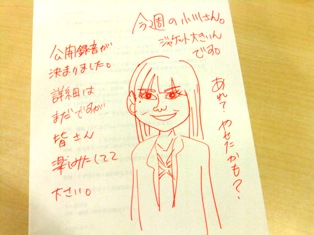 今週の小川さん。
ジャケット大きいん
です。
公開録音が
決まりました。
詳細は
まだですが
皆さん
下さい。
あれ?
やせたかも?